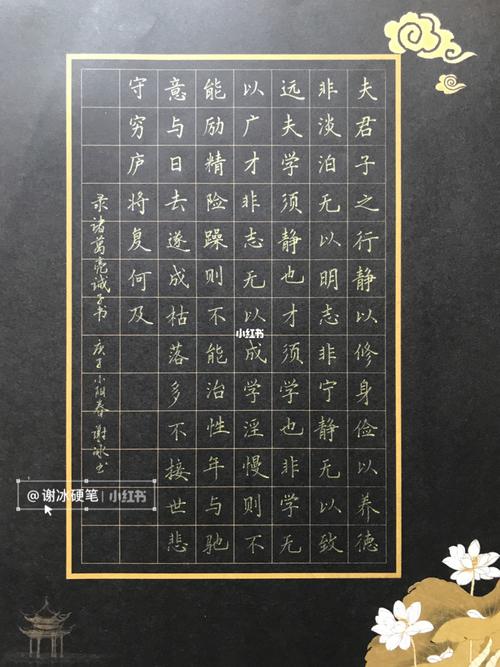 夫君子之行静以修身俭以养德
非淡泊无以明志非宁静无以致
远夫学须静也才须学也非学无
以广才非志无以成学淫慢则不
能励精险躁则不能治性年与驰
意与日去遂成枯落多不接世悲
守穷庐将复何及
录诸葛亮诫子书 庚子小阳春谢冰书
小红书
@谢冰硬笔 小红书